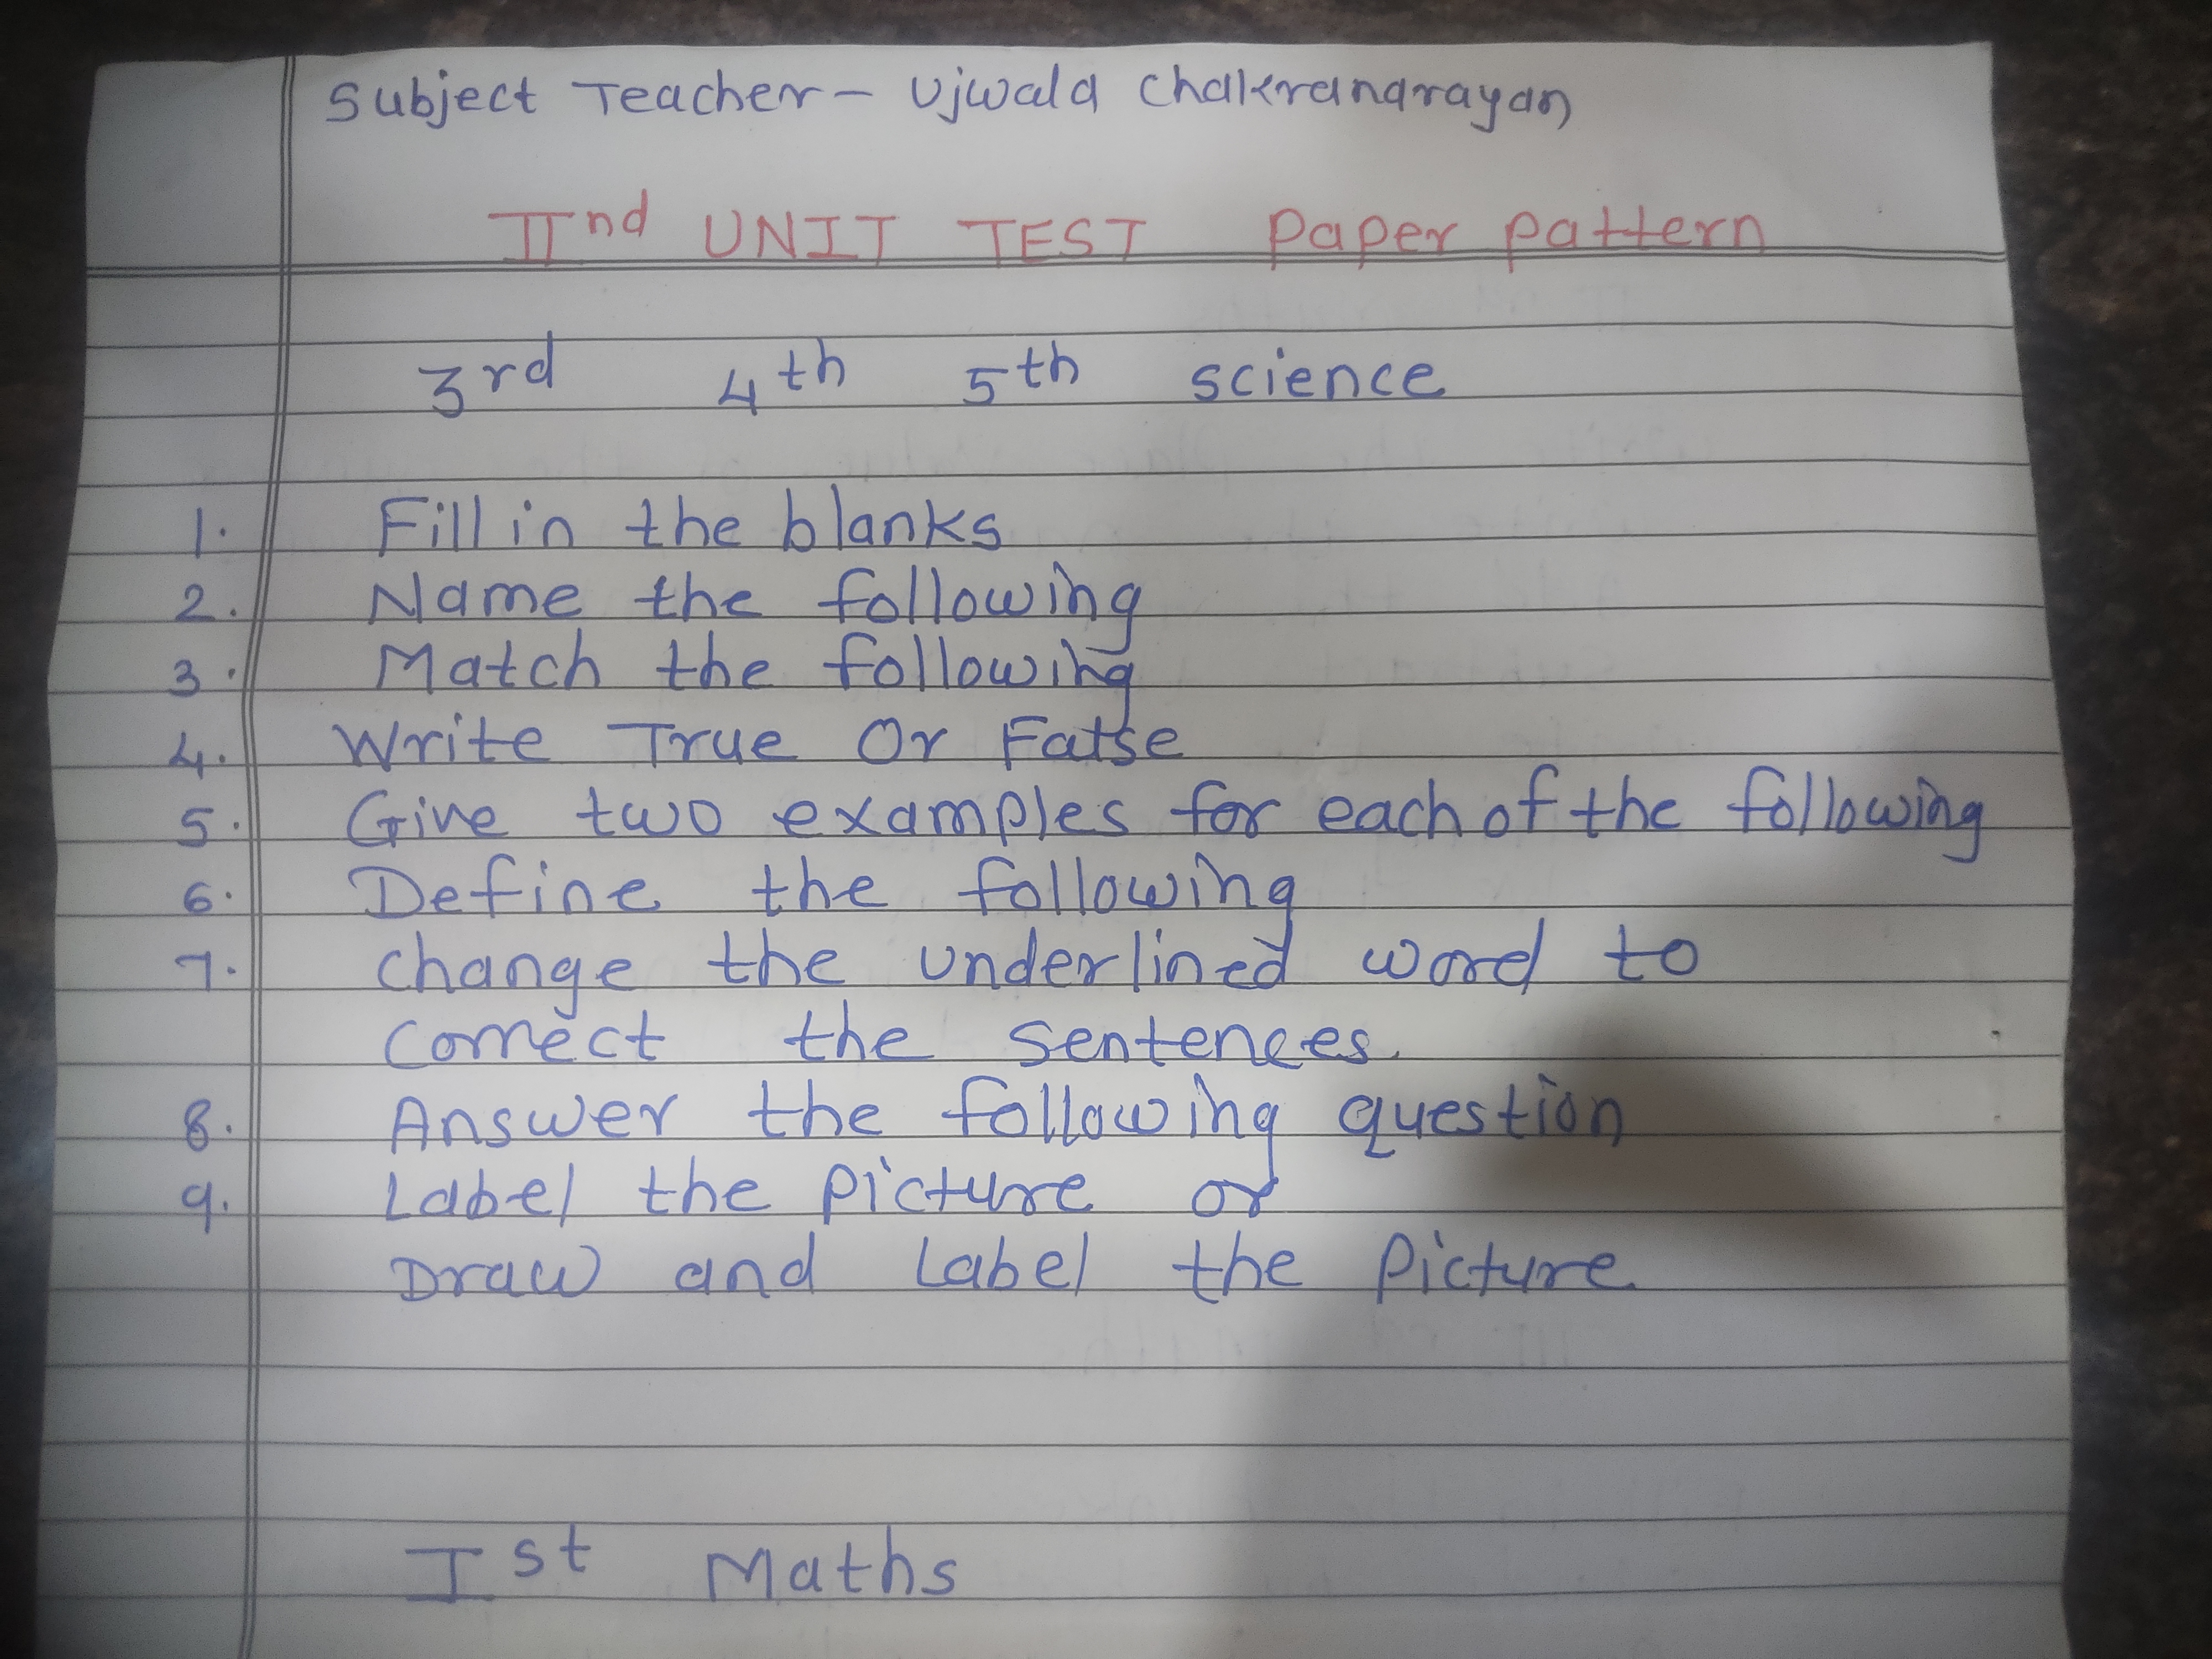 Subject Teacher - Ujwala Chakranarayan
IInd UNIT TEST Paper pattern
3rd 4th 5th science
1. Fill in the blanks
2. Name the following
3. Match the following
4. Write True Or Fatse
5. Give two examples for each of the following
6. Define the following
7. change the underlined word to
correct the sentences.
8. Answer the following question
9. Label the picture or
Draw and Label the Picture
Ist Maths